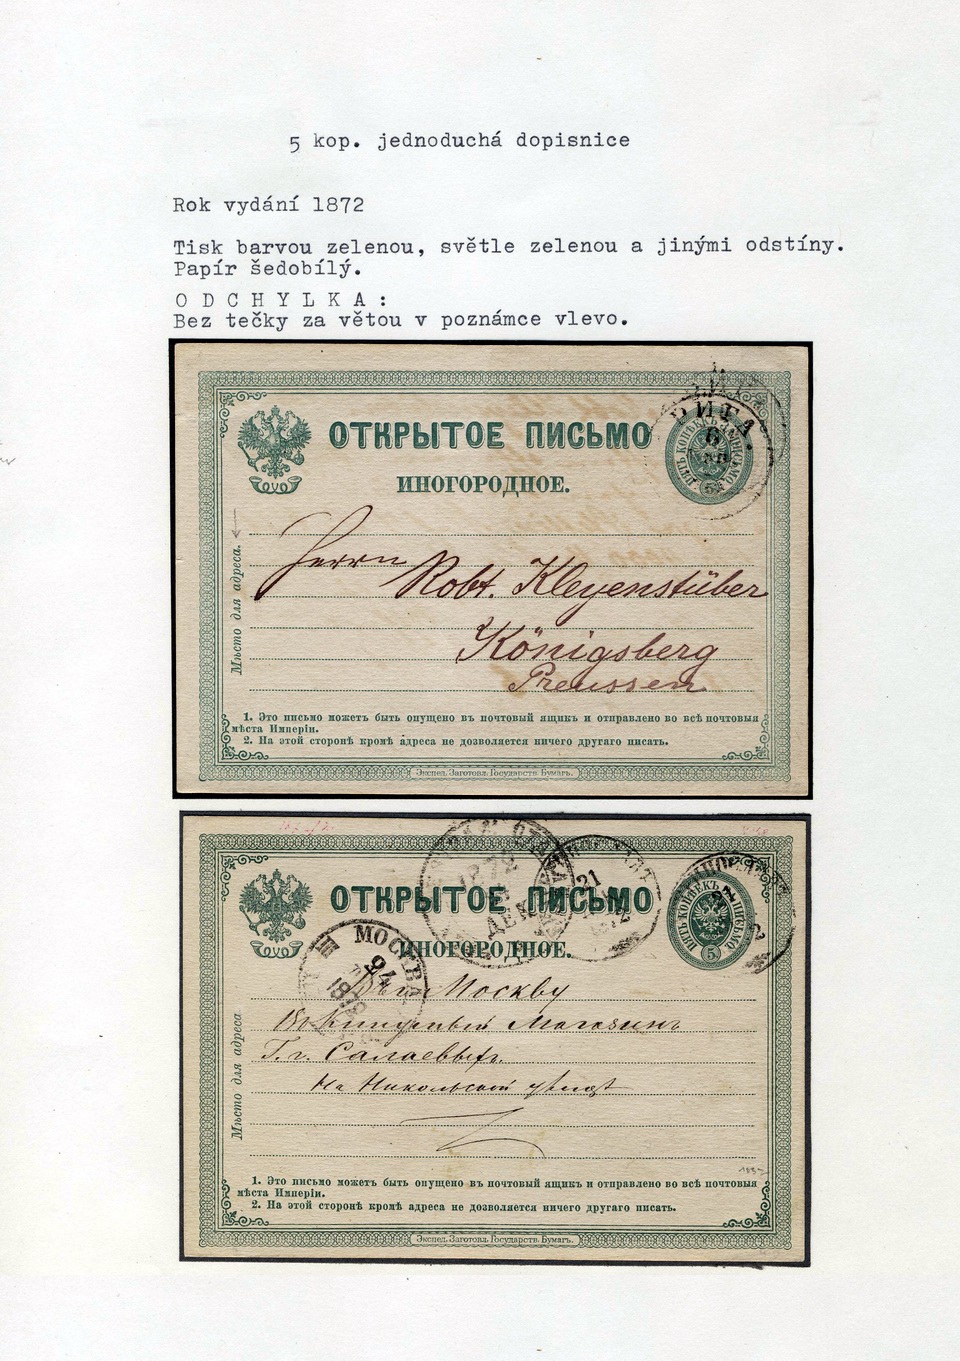 5 kop. jednoduchá dopisnice
Rok vydání 1872
Tisk barvou zelenou, světle zelenou a jinými odstíny.
Papír šedobílý.
O D C H Y L K A :
Bez tečky za větou v poznámce vlevo.
ОТКРЫТОЕ ПИСЬМО
ИНОГОРОДНОЕ.
РИГА
6
Мѣсто для адреса.
Herrn Robt. Kleyenstüber
Königsberg
Preussen
1. Это письмо можетъ быть опущено въ почтовый ящикъ и отправлено во всѣ почтовыя
мѣста Имперіи.
2. На этой сторонѣ кромѣ адреса не дозволяется ничего другаго писать.
Экспед. Заготовл. Государств. Бумагъ.
ОТКРЫТОЕ ПИСЬМО
ИНОГОРОДНОЕ.
ПЯТЬ КОПѢЕКЪ ПИСЬМО
5
1872
ДЕК
21
МОСКВА
Мѣсто для адреса
Москву
Магазинъ
Г.г. Салаевыхъ
На Никольской улицѣ
1. Это письмо можетъ быть опущено въ почтовый ящикъ и отправлено во всѣ почтовыя
мѣста Имперіи.
2. На этой сторонѣ кромѣ адреса не дозволяется ничего другаго писать.
Экспед. Заготовл. Государств. Бумагъ.